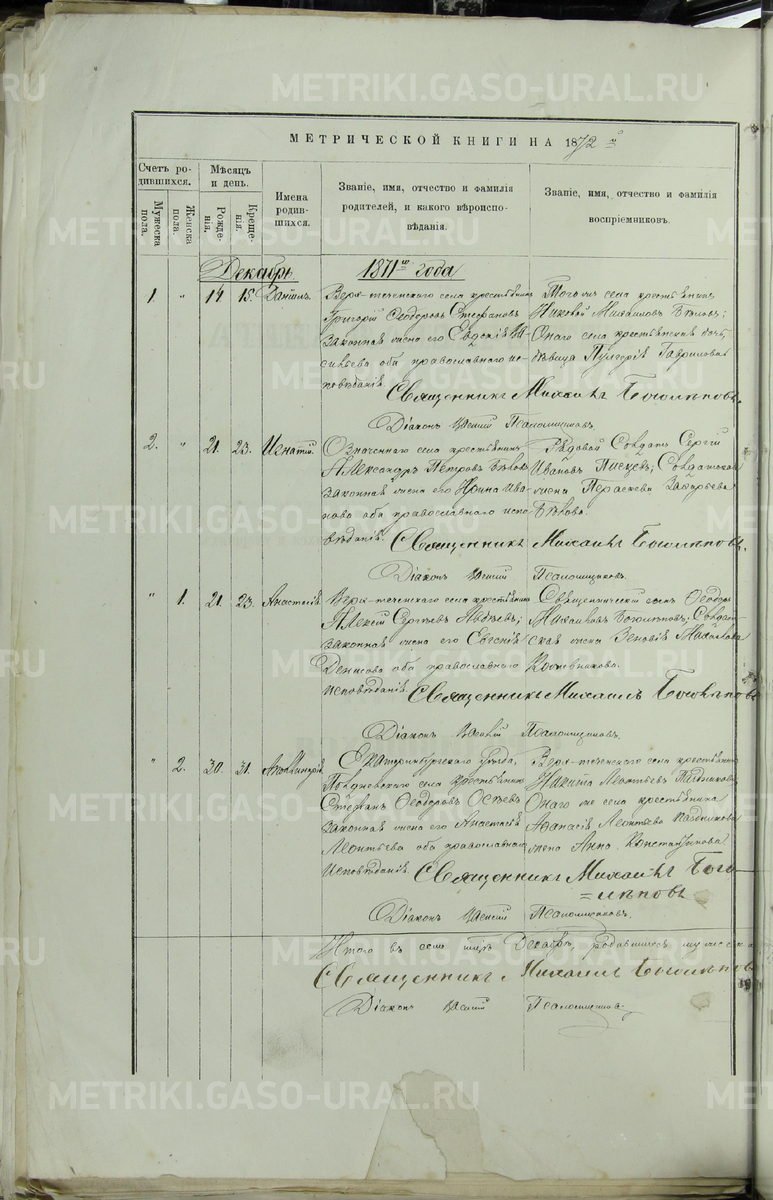 МЕТРИЧЕСКОЙ КНИГИ НА 1872 й
Счетъ родившихся.
Мужеска пола.
Женска пола.
Мѣсяцъ и день.
Рожденія.
Крещенія.
Имена родившихся.
Званіе, имя, отчество и фамилія
родителей, и какого вѣроиспо-
вѣданія.
Званіе, имя, отчество и фамилія
воспріемниковъ.
Декабрь 1871 го года
1. " 14 15. Даніилъ.
Верх-теченского села крестьянинъ
Григорій Ѳеодоровъ Стефановъ
законная жена его Евдокія
оба православнаго ис-
повѣданія.
Того же села крестьянинъ
Михаиловъ Бѣловъ;
Онаго села крестьянская дочь,
дѣвица Пулхерія Гаврилова
Священникъ Михаилъ Боголѣповъ.
Діаконъ Псаломщиковъ
2. " 21. 23. Игнатій.
Означеннаго села крестьянинъ
Александръ Петровъ Бѣловъ
законная жена его Ирина Ива-
нова оба православнаго испо-
вѣданія.
Рядовой Солдатъ Сергій
Ивановъ Солдатская
жена Параскева Захарьева
Бѣлова.
Священникъ Михаилъ Боголѣповъ.
Діаконъ Псаломщиковъ.
" 1. 21. 23. Анастасія
Верх-теченского села крестьянинъ
Алексій Сергѣевъ Авдѣевъ;
законная жена его Евгенія
Денисова оба православнаго
исповѣданія.
Священническій сынъ Ѳеодоръ
Михаиловъ Боголѣповъ; Солдат-
ская жена Зеновія Михайлова
Кожевникова.
Священникъ Михаилъ Боголѣповъ
Діаконъ Псаломщиковъ.
" 2. 30. 31.
Екатеринбургскаго уѣзда,
села крестьянинъ
Стефанъ Ѳеодоровъ
законная жена его Анастасія
Леонтьева оба православнаго
исповѣданія.
Верх-теченского села крестьянинъ
Никита Леонтьевъ
Онаго же села крестьянина
Афанасія Леонтьева
жена Анна Константинова
Священникъ Михаилъ Бого-
=лѣповъ
Діаконъ Псаломщиковъ.
Итого въ семъ Декабрѣ, родившихся
Священникъ Михаилъ Боголѣповъ
Діаконъ Псаломщиковъ
METRIKI.GASO-URAL.RU